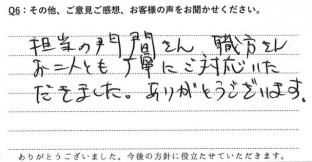 Q6：その他、ご意見ご感想、お客様の声をお聞かせください。
担当の門間さん 職方さん
お二人とも丁寧にご対応いた
だきました。ありがとうございます。
ありがとうございました。今後の方針に役立たせていただきます。